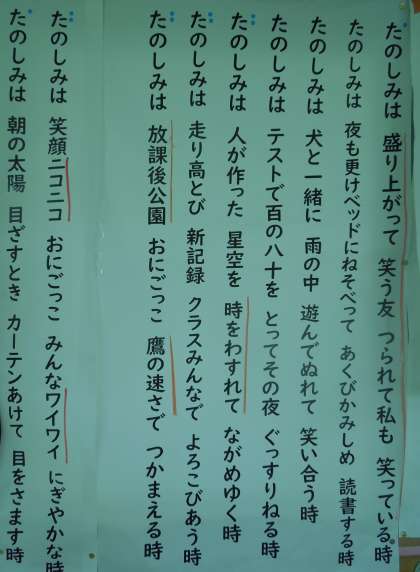 たのしみは 盛り上がって 笑う友 つられて私も 笑っている時
たのしみは 夜も更けベッドにねそべって あくびかみしめ 読書する時
たのしみは 犬と一緒に 雨の中 遊んでぬれて 笑い合う時
たのしみは テストで百の八十を とってその夜 ぐっすりねる時
たのしみは 人が作った 星空を 時をわすれて ながめゆく時
たのしみは 走り高とび 新記録 クラスみんなで よろこびあう時
たのしみは 放課後公園 おにごっこ 鷹の速さで つかまえる時
たのしみは 笑顔ニコニコ おにごっこ みんなワイワイ にぎやかな時
たのしみは 朝の太陽 目ざすとき カーテンあけて 目をさます時